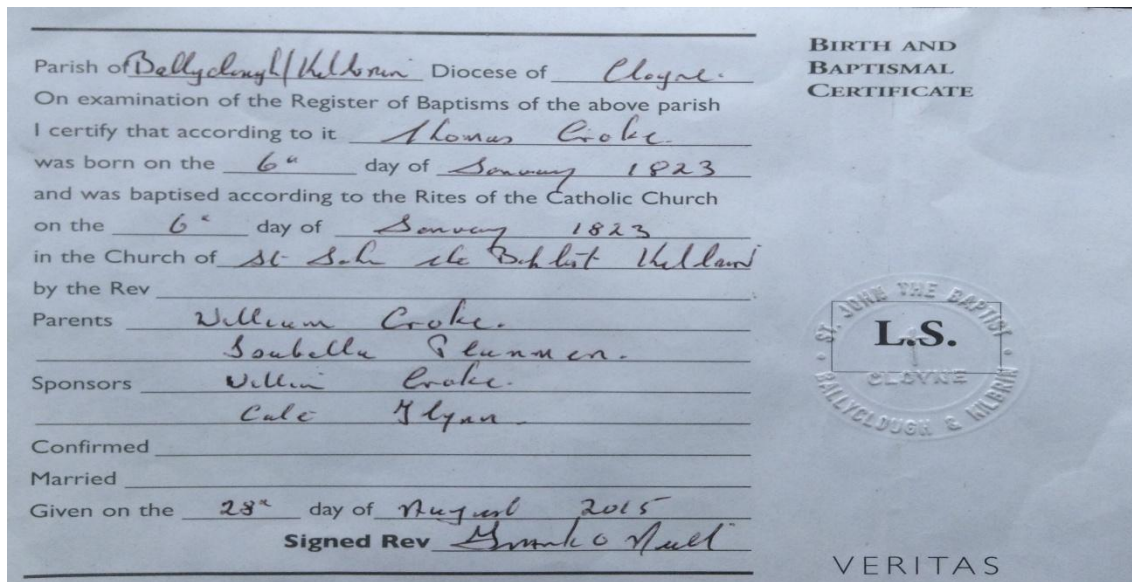 Parish of Ballyclough/Kilbrin Diocese of Cloyne.
On examination of the Register of Baptisms of the above parish
I certify that according to it Thomas Croke.
was born on the 6th day of January 1823
and was baptised according to the Rites of the Catholic Church
on the 6th day of January 1823
in the Church of St John the Baptist
by the Rev
Parents William Croke.
Isabella
Sponsors William Croke.
Flynn.
Confirmed
Married
Given on the 28th day of August 2015
Signed Rev
BIRTH AND
BAPTISMAL
CERTIFICATE
ST. JOHN THE BAPTIST
L.S.
CLOYNE
BALLYCLOUGH & KILBRIN
VERITAS